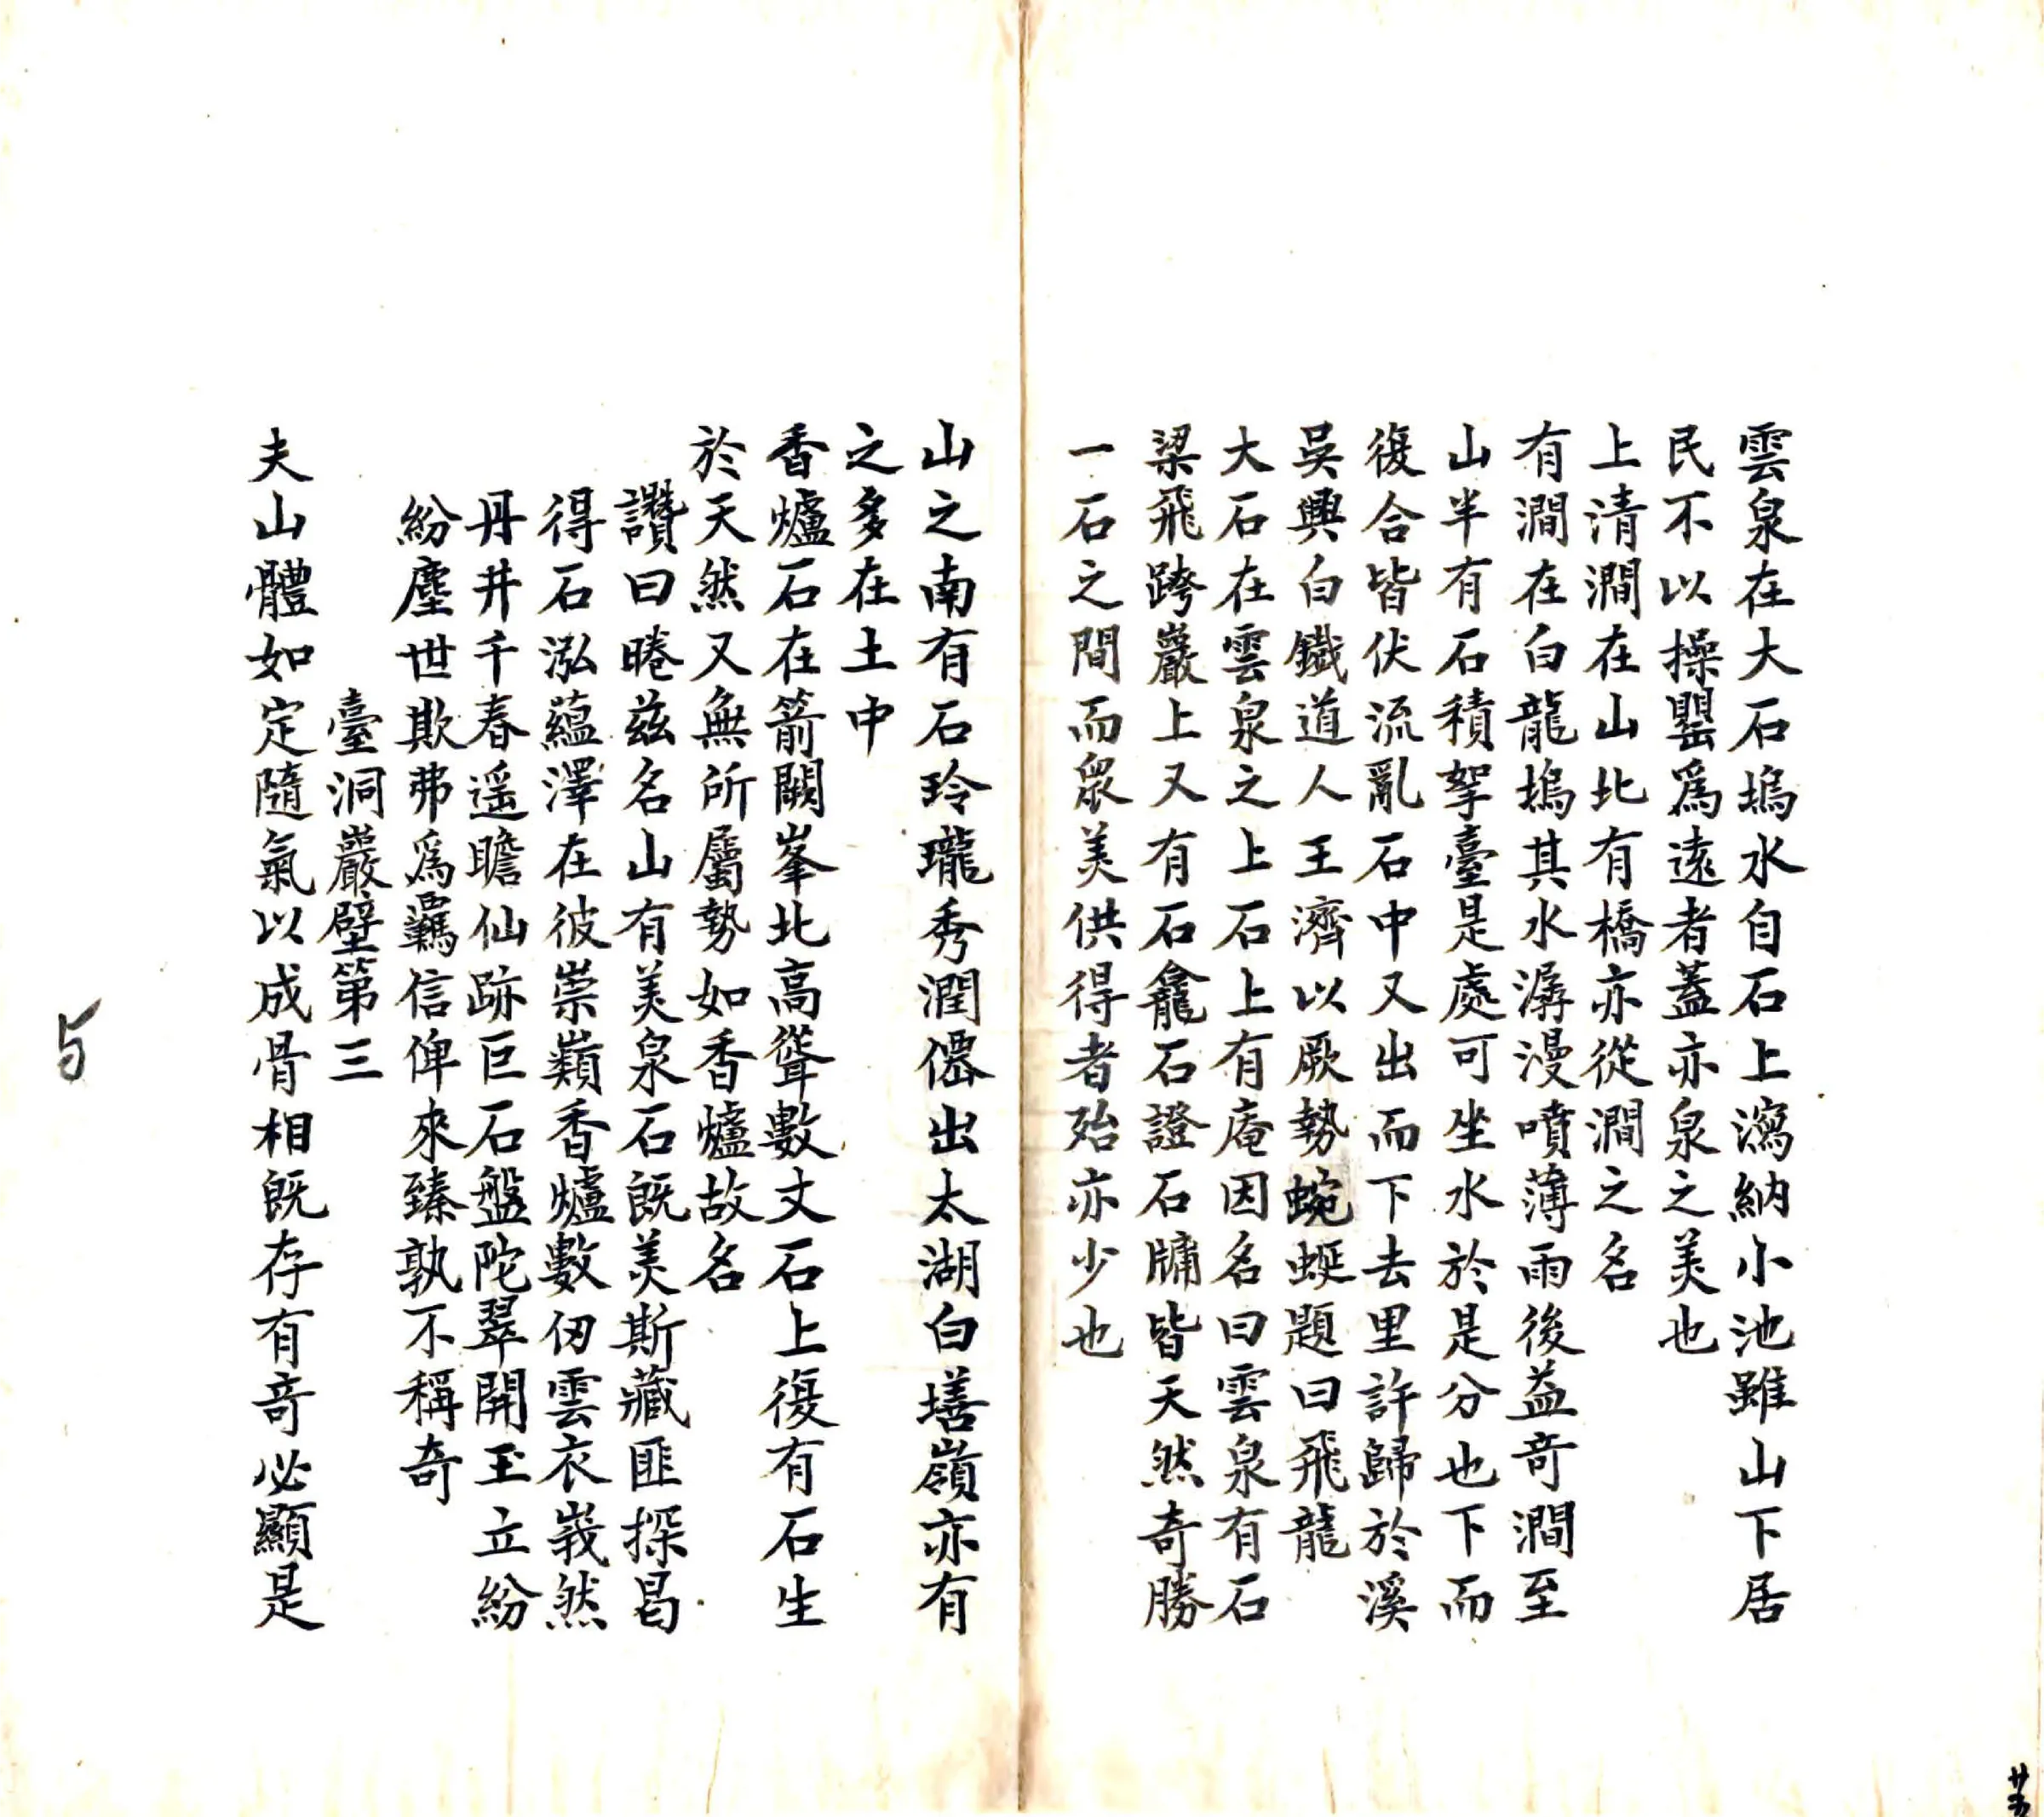 雲泉在大石塢水自石上瀉納小池雖山下居
民不以操罌爲遠者蓋亦泉之美也
上清澗在山北有橋亦從澗之名
有澗在白龍塢其水潺漫噴薄雨後益竒澗至
山半有石積挐臺是處可坐水於是分也下而
復合皆伏流亂石中又出而下去里許歸於溪
吳興白鐵道人王濟以厥勢蜿蜒題曰飛龍
大石在雲泉之上石上有庵因名曰雲泉有石
梁飛跨巖上又有石龕石證石牗皆天然奇勝
一石之間而衆美供得者殆亦少也
山之南有石玲瓏秀潤僊出太湖白墡嶺亦有
之多在土中
香爐石在箭闕峯北高聳數丈石上復有石生
於天然又無所屬勢如香爐故名
讚曰睠茲名山有美泉石既美斯藏匪探曷
得石泓蘊澤在彼崇巔香爐數仞雲衣峩然
丹井千春遥瞻仙跡巨石盤陀翠開玉立紛
紛塵世欺弗爲羈信俾來臻孰不稱奇
臺洞巖壁第三
夫山體如定隨氣以成骨相既存有竒必顯是
5